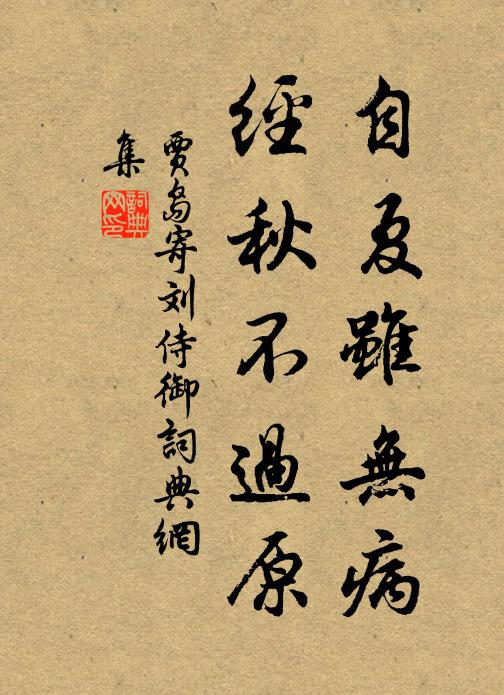 自夏雖無病
經秋不過原
賈島寄刘侍御詞典網
集
詞典网印